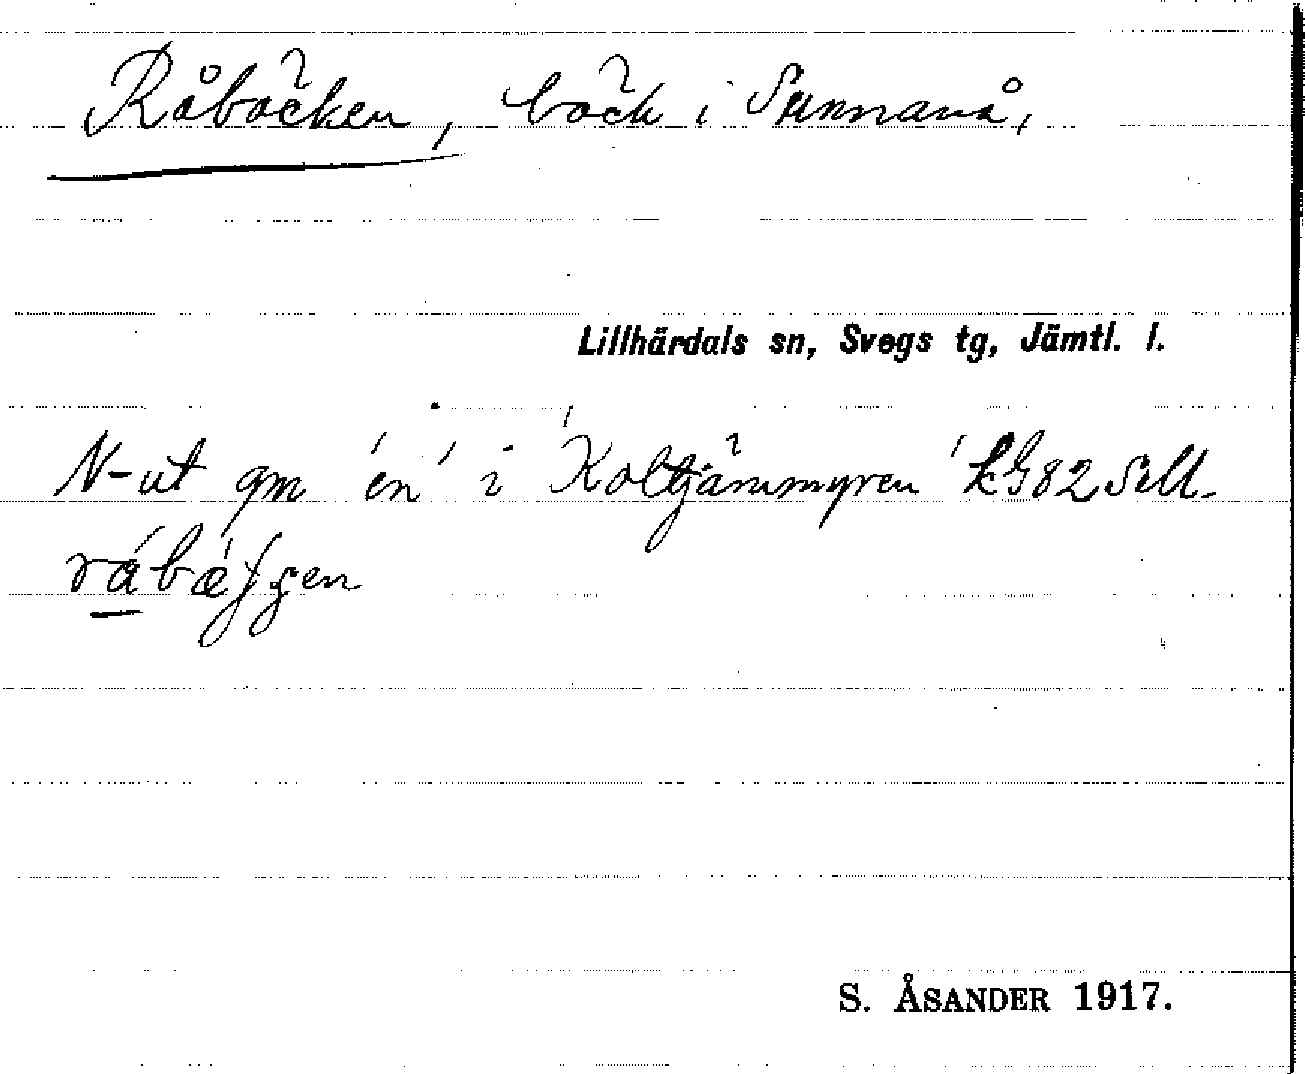 Råbäcken, bäck i Sunnanå,
Lillhärdals sn, Svegs tg, Jämtl. l.
N-ut gm 'en' i 'Koltjämmyren' LG82
råbæ
S. ÅSANDER 1917.